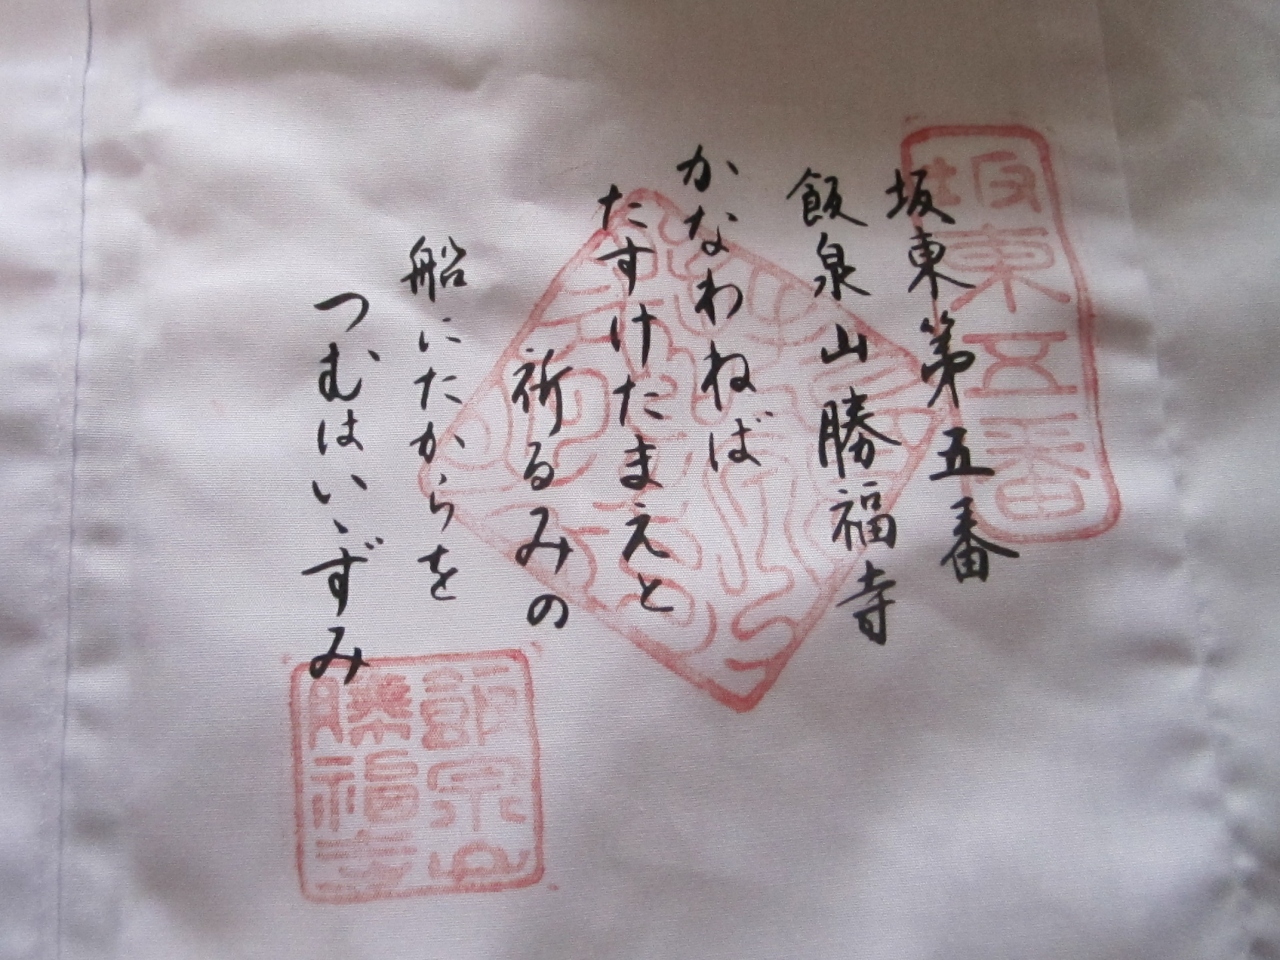 坂東第五番
飯泉山勝福寺
かなわねば
たすけたまえと
祈るみの
船にたからを
つむはいゝずみ
坂東五番
飯泉山
勝福寺